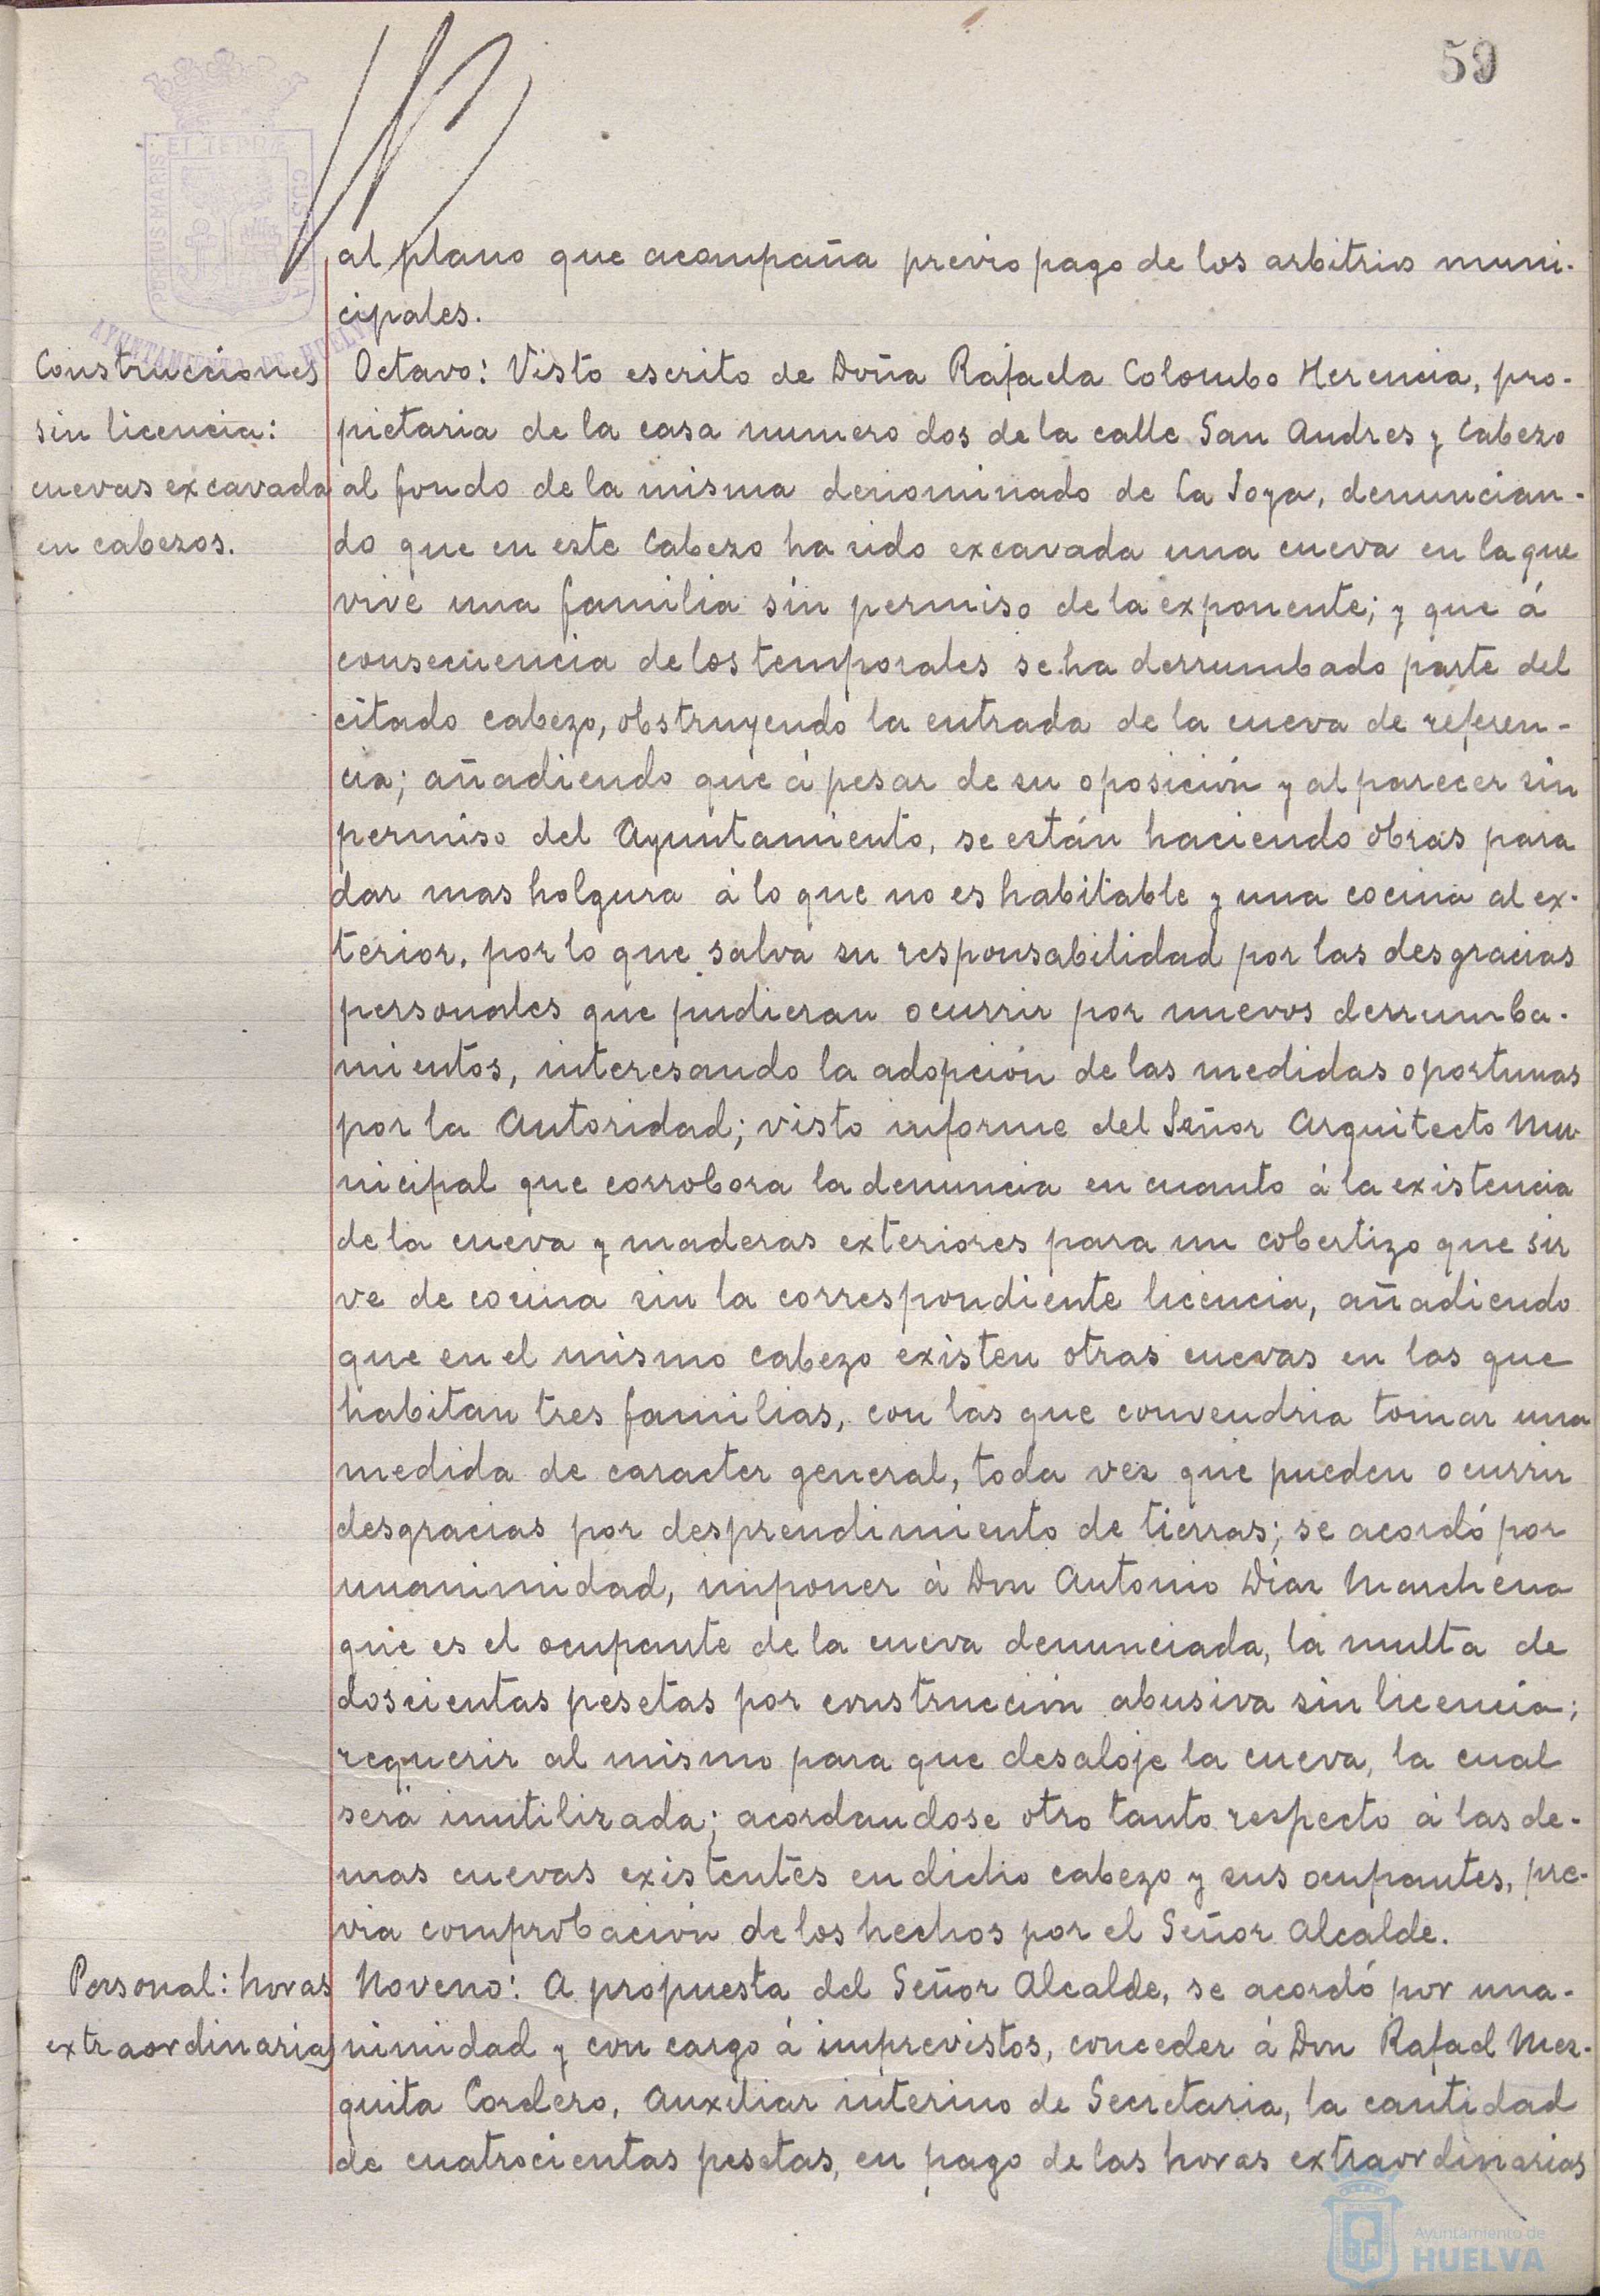 59
al plano que acompaña previo pago de los arbitrios muni-
cipales.
Construcciones
sin licencia:
cuevas excavada
en cabezos.
Octavo: Visto escrito de Doña Rafaela Colombo Herencia, pro-
pietaria de la casa numero dos de la calle San Andres y Cabezo
al fondo de la misma denominado de La Joya, denuncian-
do que en este Cabezo ha sido excavada una cueva en la que
vive una familia sin permiso de la exponente; y que á
consecuencia de los temporales se ha derrumbado parte del
citado cabezo, obstruyendo la entrada de la cueva de referen-
cia; añadiendo que á pesar de su oposición y al parecer sin
permiso del Ayuntamiento, se están haciendo obras para
dar mas holgura á lo que no es habitable y una cocina al ex-
terior, por lo que salva su responsabilidad por las desgracias
personales que pudieran ocurrir por nuevos derrumba-
mientos, interesando la adopción de las medidas oportunas
por la Autoridad; visto informe del Señor Arquitecto Mu-
nicipal que corrobora la denuncia en cuanto á la existencia
de la cueva y maderas exteriores para un cobertizo que sir
ve de cocina sin la correspondiente licencia, añadiendo
que en el mismo cabezo existen otras cuevas en las que
habitan tres familias, con las que convendria tomar una
medida de caracter general, toda vez que pueden ocurrir
desgracias por desprendimiento de tierras; se acordó por
unanimidad, imponer á Don Antonio Diaz Marchena
que es el ocupante de la cueva denunciada, la multa de
doscientas pesetas por construcción abusiva sin licencia;
requerir al mismo para que desaloje la cueva, la cual
será inutilizada; acordandose otro tanto respecto á las de-
mas cuevas existentes en dicho cabezo y sus ocupantes, pre-
via comprobación de los hechos por el Señor Alcalde.
Personal: horas
extraordinarias
Noveno: A propuesta del Señor Alcalde, se acordó por una-
nimidad y con cargo á imprevistos, conceder á Don Rafael Mez-
quita Cordero, Auxiliar interino de Secretaria, la cantidad
de cuatrocientas pesetas, en pago de las horas extraordinarias
AYUNTAMIENTO DE HUELVA
Ayuntamiento de
HUELVA